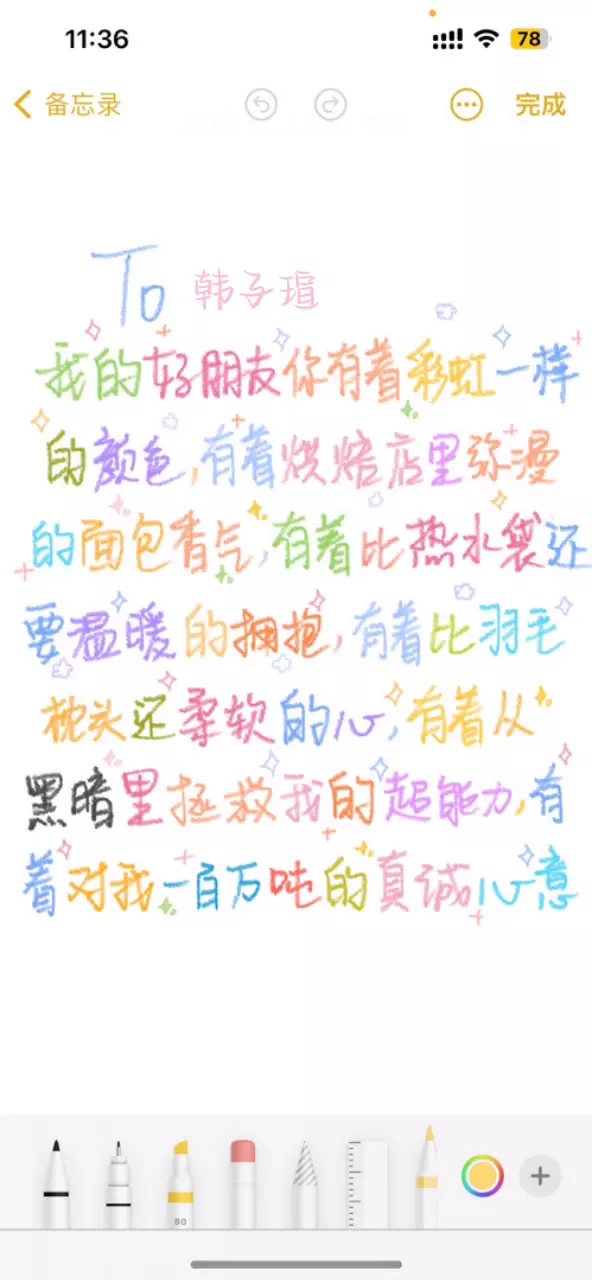 11:36
78
备忘录
完成
To 韩子瑄
我的好朋友你有着彩虹一样
的颜色,有着烘焙店里弥漫
的面包香气,有着比热水袋还
要温暖的拥抱,有着比羽毛
枕头还柔软的心,有着从
黑暗里拯救我的超能力,有
着对我一百万吨的真诚心意
80